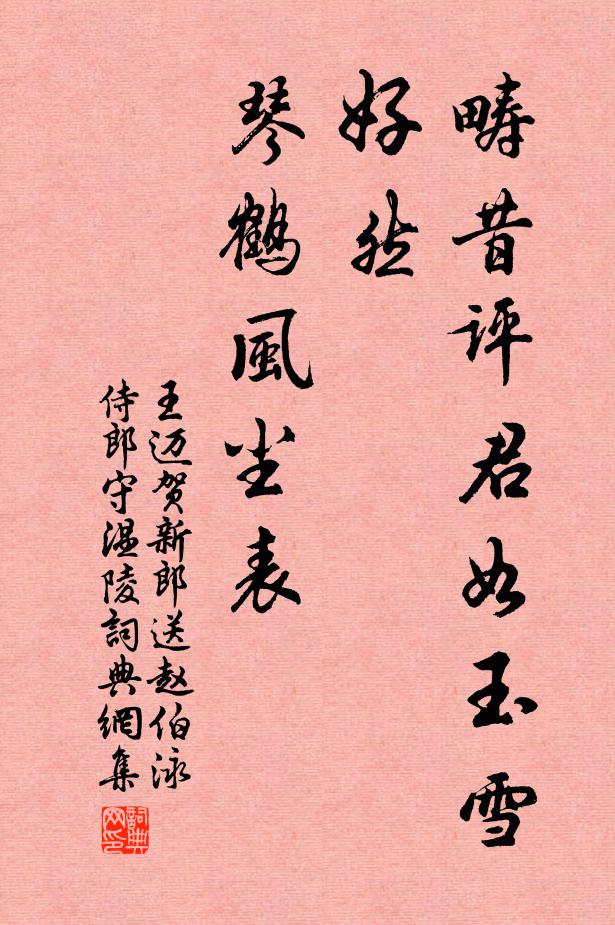 畴昔评君如玉雪
好然
琴鹤風尘表
王迈贺新郎送赵伯泳
侍郎守温陵詞典網集
詞典网印